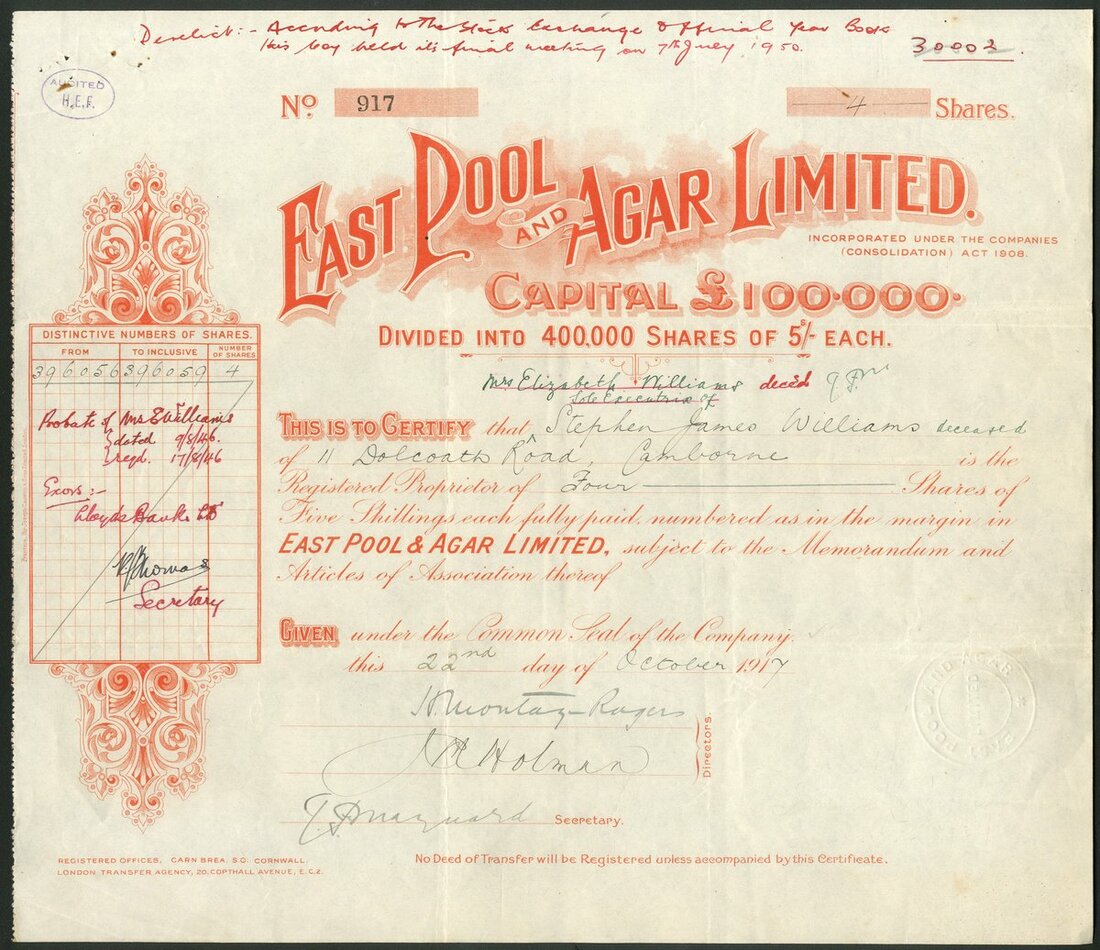 Derelict:- According to the Stock Exchange Official Year Book
this coy held its final meeting on 7th July 1950.
30002.
AUDITED
H.E.F.
No. 917
4 Shares.
EAST POOL AND AGAR LIMITED.
INCORPORATED UNDER THE COMPANIES
(CONSOLIDATION) ACT 1908.
CAPITAL £100·000·
DIVIDED INTO 400,000 SHARES OF 5/- EACH.
DISTINCTIVE NUMBERS OF SHARES.
FROM TO INCLUSIVE NUMBER OF SHARES
396056 396059 4
Probate of Mrs E Williams
dated 9/8/46.
regd. 17/8/46
Exors:-
Lloyds Bank Ltd
Thomas
Secretary
Mrs Elizabeth Williams decéd
Sole Executrix of
THIS IS TO CERTIFY that Stephen James Williams deceased
of 11 Dolcoath Road, Camborne is the
Registered Proprietor of Four Shares of
Five Shillings each fully paid, numbered as in the margin in
EAST POOL & AGAR LIMITED, subject to the Memorandum and
Articles of Association thereof
GIVEN under the Common Seal of the Company,
this 22nd day of October 1917
H Montag Rogers
J M Holman
Directors.
Maynard Secretary.
EAST POOL AND AGAR
LIMITED
REGISTERED OFFICES, CARN BREA, S.O. CORNWALL.
LONDON TRANSFER AGENCY, 20, COPTHALL AVENUE, E.C.2.
No Deed of Transfer will be Registered unless accompanied by this Certificate.